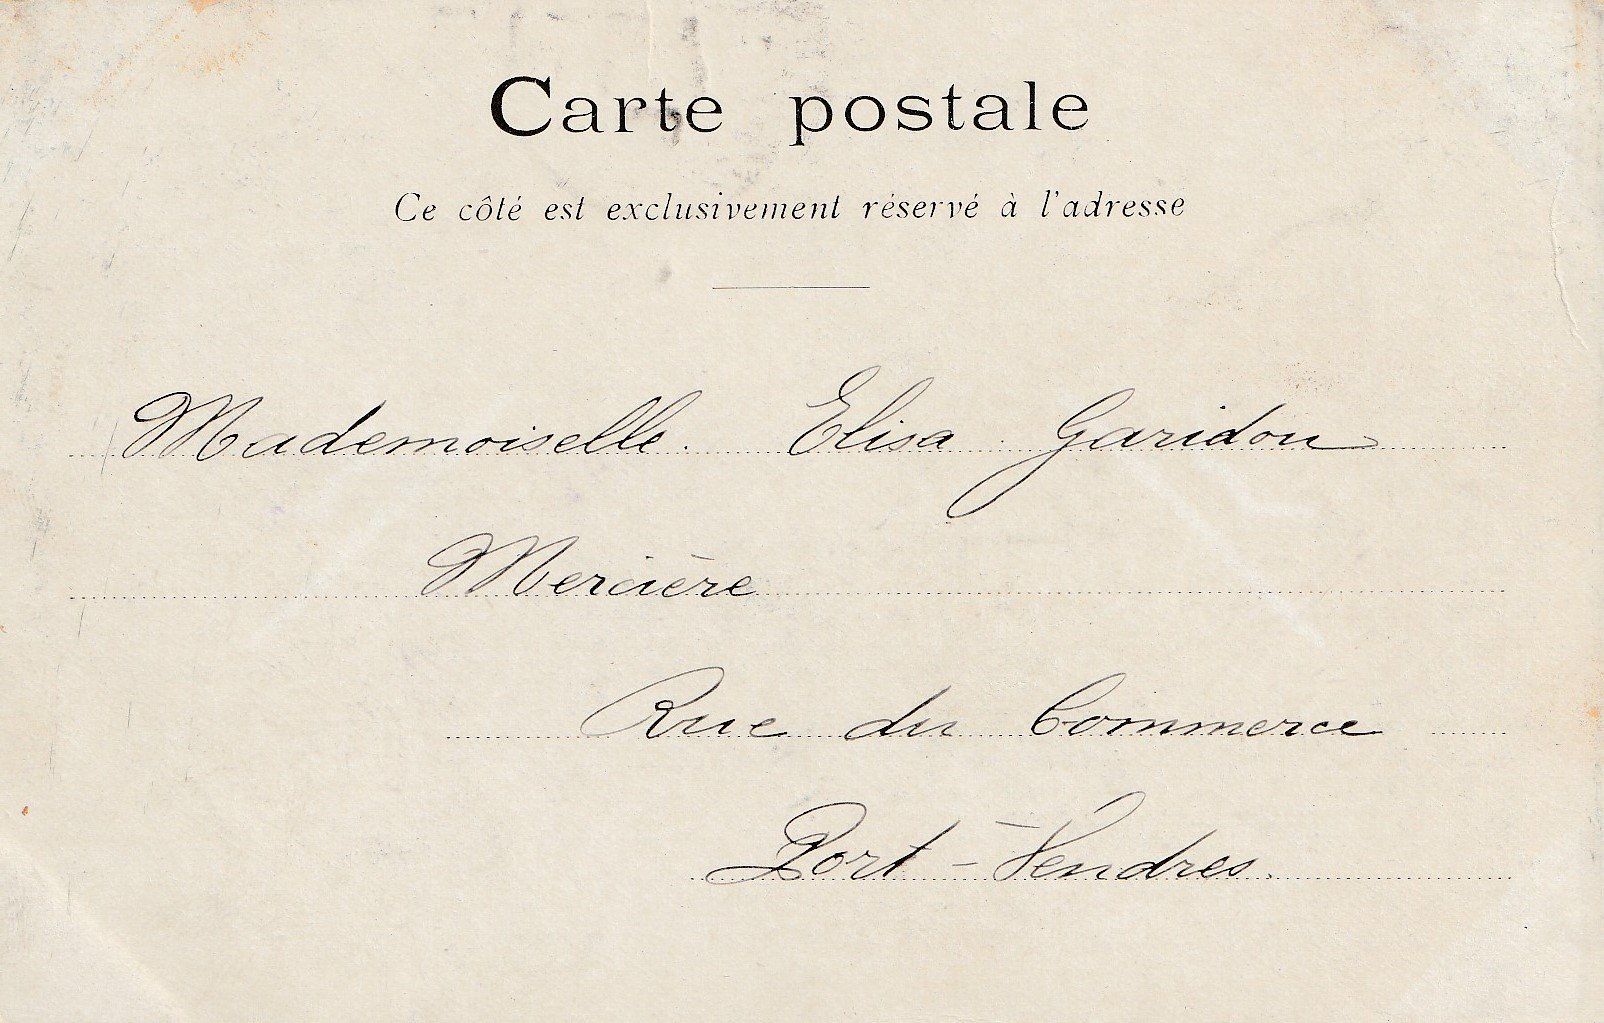 Carte postale
Ce côté est exclusivement réservé à l'adresse
Mademoiselle Elisa Garidou
Mercière
Rue du Commerce
Port-Vendres